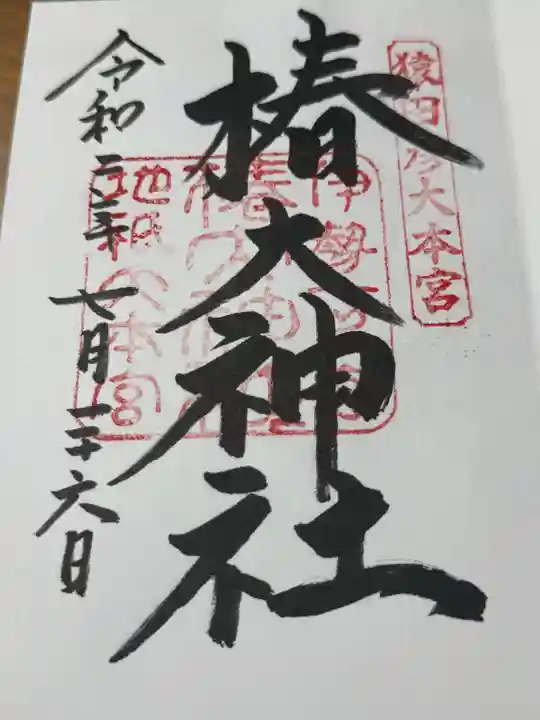 猿田彦大本宮
椿大神社
伊勢一の宮
椿大神社
地祇大本宮
令和二年
七月二十六日